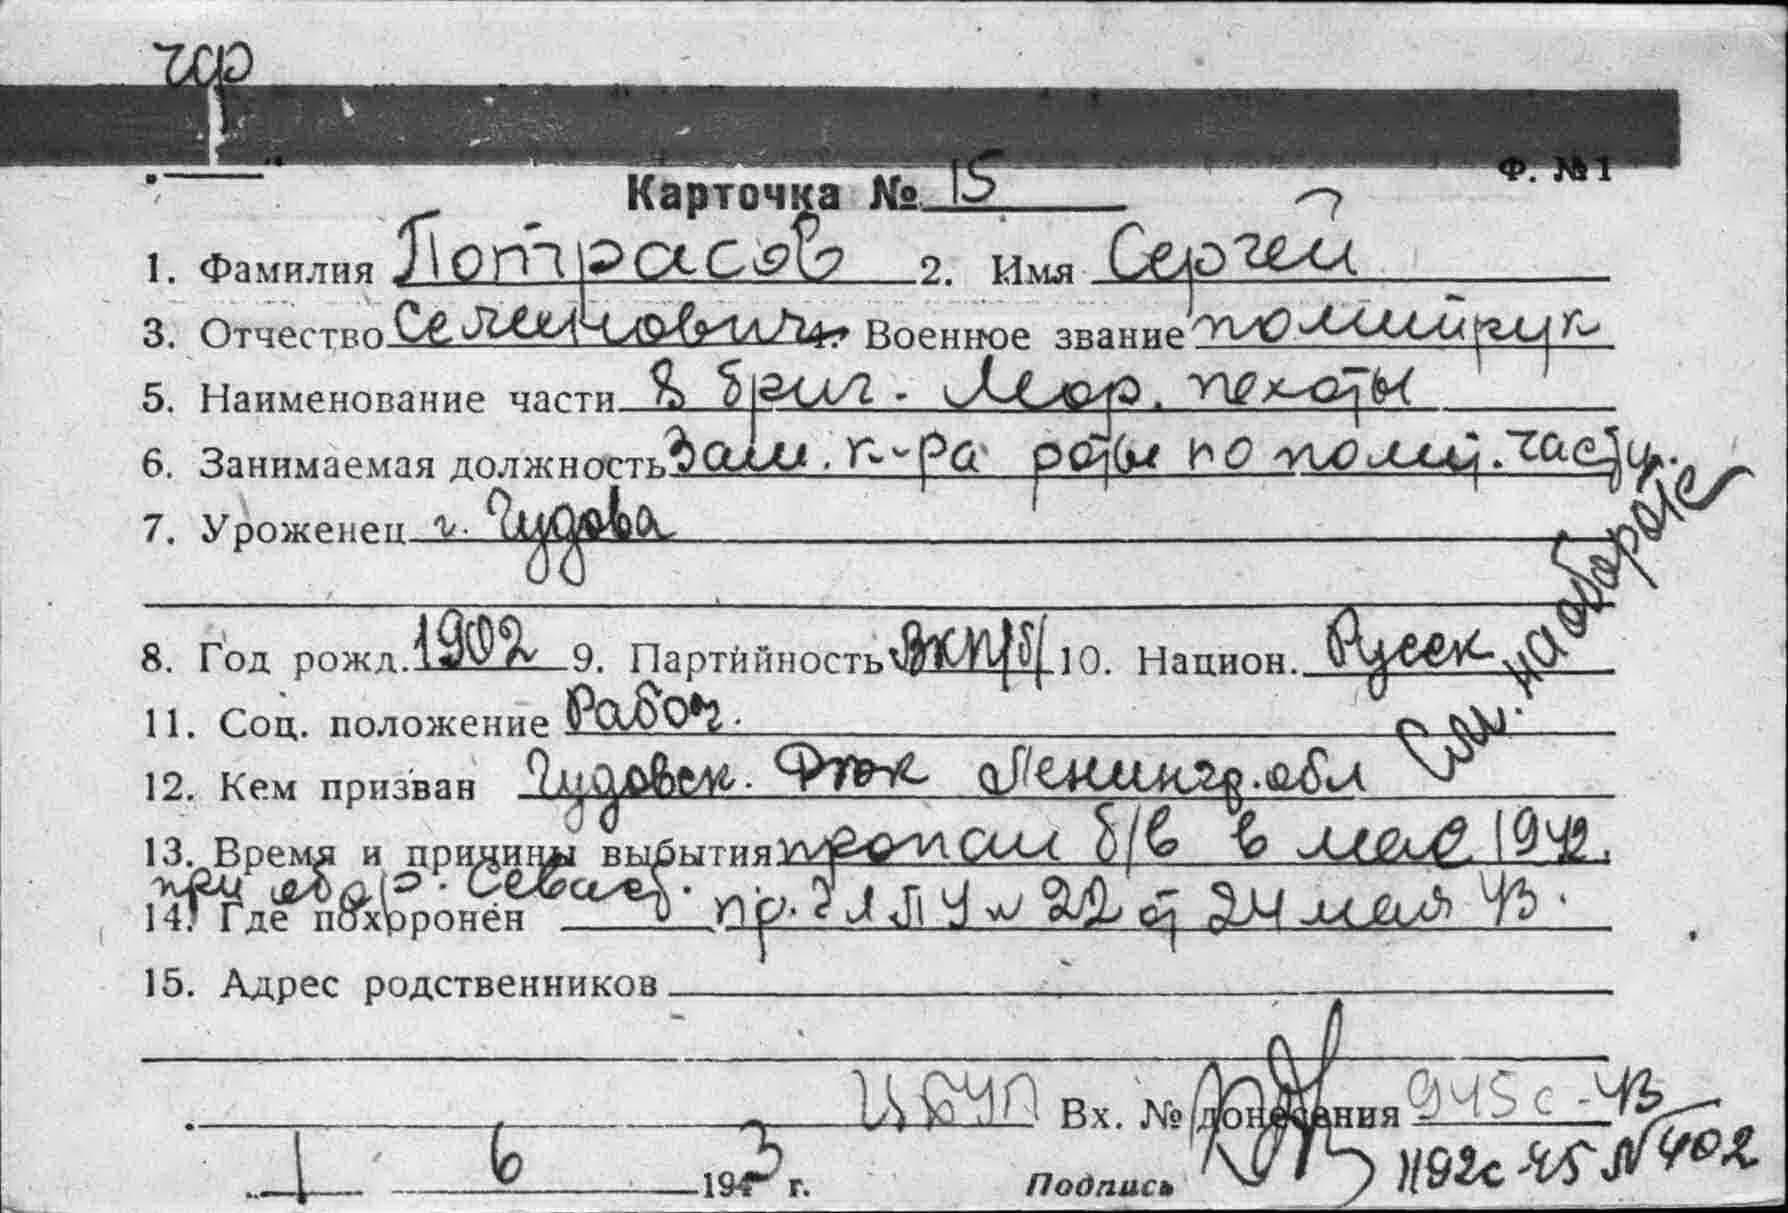 чф
Ф. №1
Карточка № 15
1. Фамилия Потрасов 2. Имя Сергей
3. Отчество Семенович 4. Военное звание политрук
5. Наименование части 8 бриг. Мор. пехоты
6. Занимаемая должность Зам. к-ра роты по полит. части.
7. Уроженец г. Чудова
8. Год рожд. 1902 9. Партийность ВКП/б/ 10. Национ. Русск
11. Соц. положение Рабоч.
См. на обороте
12. Кем призван Чудовск. РВК Ленингр. обл
13. Время и причины выбытия пропал б/в в мае 1942.
при обор. Севаст.
14. Где похоронен пр. ГлПУ № 22 от 24 мая 43.
15. Адрес родственников
Вх. № донесения 945с-43
1 6 1943 г. Подпись 1192с-45 №402